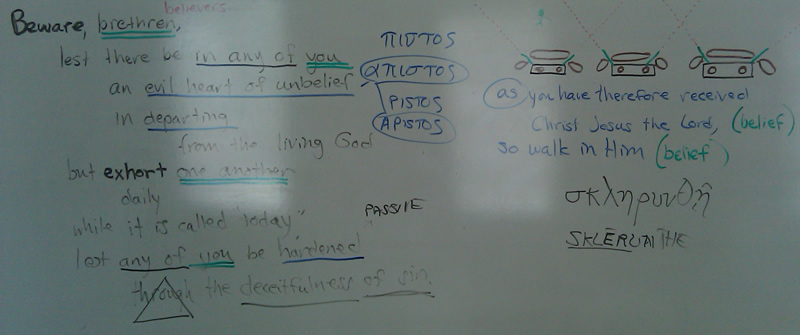 believers
Beware, brethren,
lest there be in any of you
an evil heart of unbelief
in departing
from the living God
but exhort one another
daily
while it is called "Today"
lest any of you be hardened
through the deceitfulness of sin.
πιστος
απιστος
PISTOS
APISTOS
PASSIVE
as you have therefore received
Christ Jesus the Lord, (belief)
so walk in Him (belief)
σκληρυνθῇ
SKLĒRUNTHE